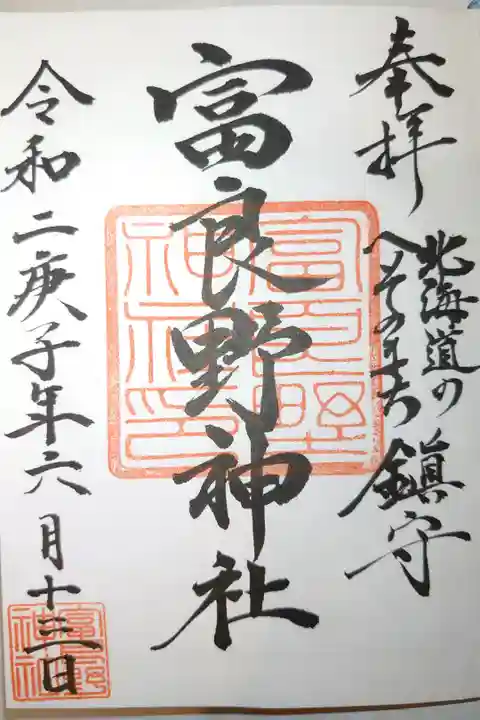 奉拝
北海道の
へそのまち 鎮守
富良野神社
富良野神社印
令和二庚子年六月十三日
富良野神社